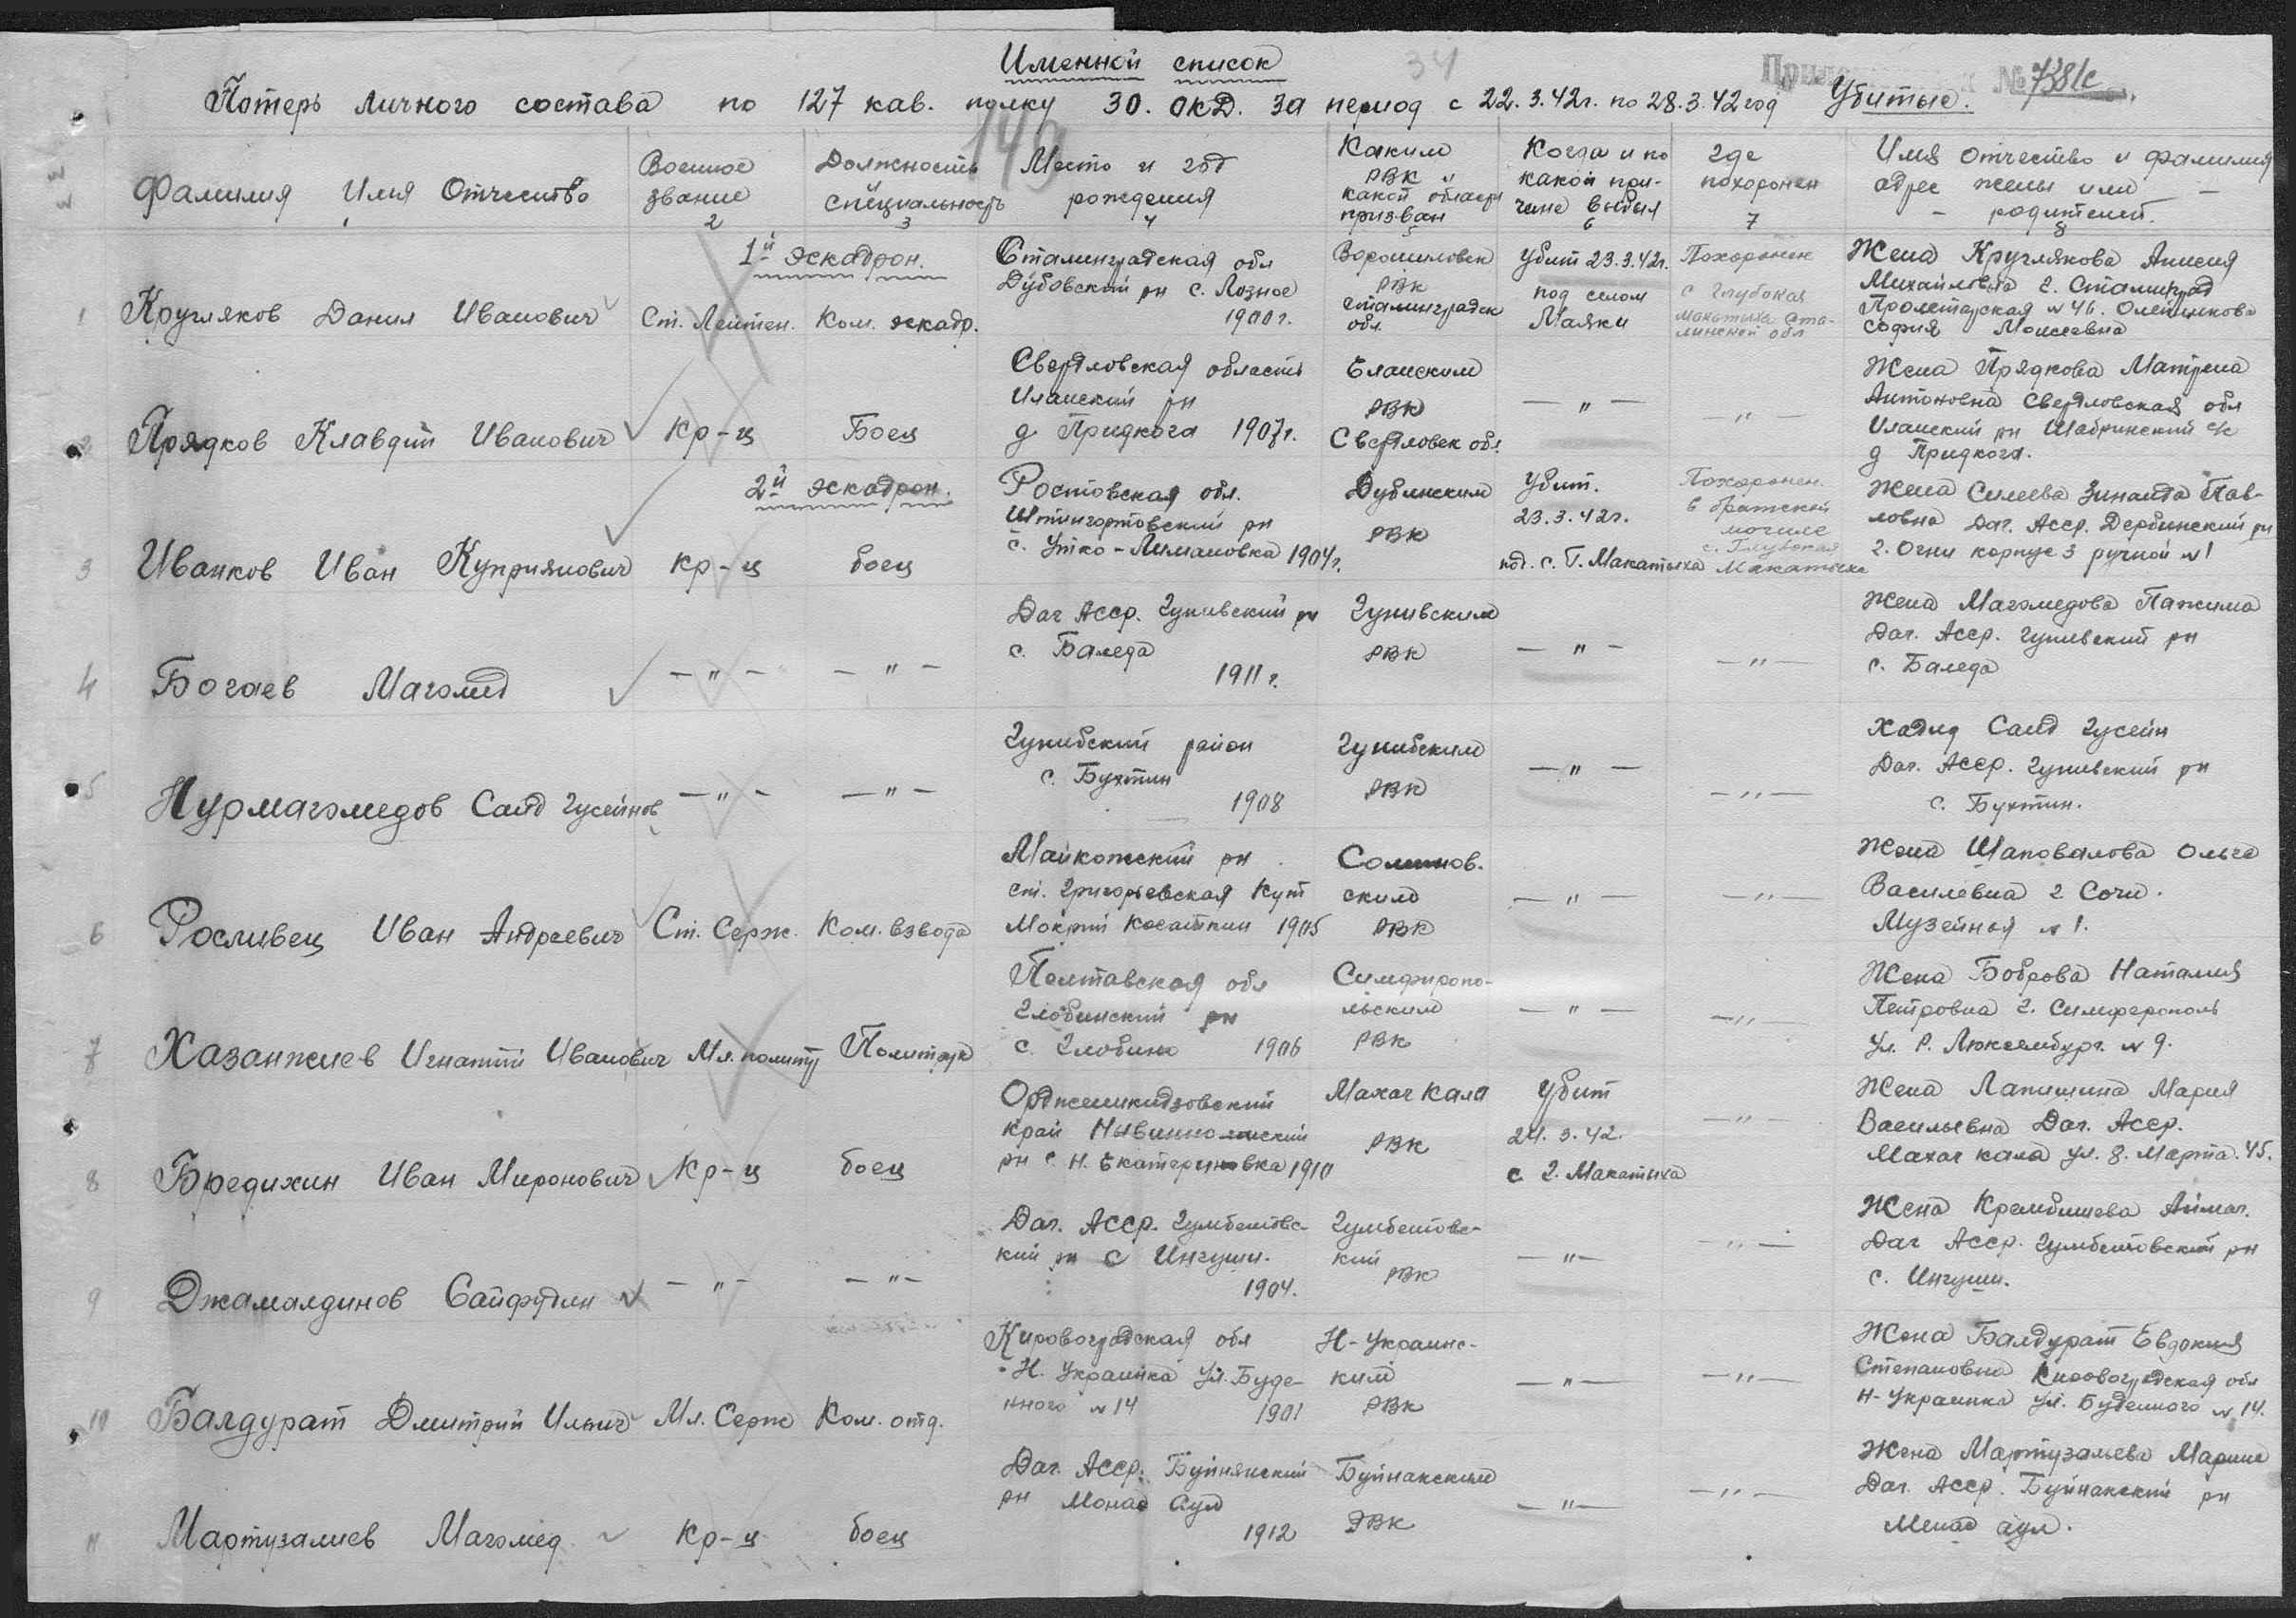 Именной список
34
№ 738/с
Потерь личного состава по 127 кав. полку 30. ОКД. за период с 22.3.42г. по 28.3.42 год Убитые.
149
Фамилия Имя Отчество
1
Военное
звание
2
Должность
специальность
3
Место и год
рождения
4
Каким
РВК и
какой области
призван
5
Когда и по
какой при-
чине выбыл
6
где
похоронен
7
Имя отчество и фамилия
адрес жены или —
— родителей.
8
1й эскадрон.
1
Кругляков Данил Иванович
Ст. Лейтен.
Ком. эскадр.
Сталинградская обл
Дубовский рн с. Лозное
1900г.
Ворошиловск
РВК
сталинградск
обл.
Убит 23.3.42г.
под селом
Маяки
Похоронен
с Глубокая
макатыха Ста-
линской обл
Жена Круглякова Анисия
Михайловна г. Сталинград
Пролетарская №46. Олейникова
София Моисеевна
2
Прядков Клавдий Иванович
Кр-ц
Боец
Свердловская область
Иланский рн
д Придкога 1907г.
Еланским
РВК
Свердловск обл.
— " —
— " —
Жена Прядкова Матрена
Антоновна Свердловская обл
Иланский рн Шабринский с/с
д Придкога.
2й эскадрон.
3
Иванков Иван Куприянович
Кр-ц
боец
Ростовская обл.
Штингортовский рн
с. Утко-Лимановка 1904г.
Дубинским
РВК
Убит.
23.3.42г.
под. с. Г. Макатыха
Похоронен.
в братской
могиле
с. Глубокая
Макатыха
Жена Силеева Зинаида Пав-
ловна Даг. Асср. Дербинский рн
г. Огни корпус 3 ручной №1
4
Богаев Магомед
— " —
— " —
Даг Асср. Гунивский рн
с. Баледа
1911 г.
Гунивским
РВК
— " —
— " —
Жена Магомедова Патима
Даг. Асср. Гунивский рн
с. Баледа
5
Нурмагомедов Саид Гусейнов
— " —
— " —
Гунибский район
с. Бухтин
1908
Гунибским
РВК
— " —
— " —
Хадид Саид Гусейн
Даг. Асср. Гунивский рн
с. Бухтин.
6
Росливец Иван Андреевич
Ст. Серж.
Ком. взвода
Майкопский рн
ст. Григорьевская Кут
Мокрий Косаткин 1905
ским
РВК
— " —
— " —
Жена Шаповалова Ольга
Василевна г Сочи.
Музейная №1.
7
Хазанжиев Игнатий Иванович
Мл. политр
Политрук
Полтавская обл
Глобинский рн
с. Глобино 1906
Симфиропо-
льским
РВК
— " —
— " —
Жена Боброва Наталия
Петровна г. Симферополь
Ул. Р. Люксембург. №9.
8
Бредихин Иван Миронович
Кр-ц
боец
Орджоникидзовский
край Нывинномиский
рн с. Н. Екатериновка 1910
Махач Кала
РВК
Убит
24.3.42.
с Г. Макатыха
— " —
Жена Лапишина Мария
Васильевна Даг. Асср.
Махач кала ул. 8. Марта. 45.
9
Джамалдинов Сайфудин
— " —
— " —
Даг. Асср. Гумбетовс-
кий рн с Ингуши.
1904.
Гумбетовс-
кий
РВК
— " —
— " —
Жена Крембишева Аймаг.
Даг Асср. Гумбетовский рн
с. Ингуши.
10
Балдурат Дмитрий Ильич
Мл. Серж
Ком. отд.
Кировоградская обл
Н. Украинка Ул. Буде-
нного №14
1901
Н-Украинс-
ким
РВК
— " —
— " —
Жена Балдурат Евдокия
Степановна Кировоградская обл
Н-Украинка ул. Буденного №14.
11
Мартузалиев Магомед
Кр-ц
боец
Даг. Асср. Буйнянский
рн Монас Аул
1912
Буйнакским
РВК
— " —
— " —
Жена Мартузалиева Марине
Даг. Асср. Буйнакский рн
Менас аул.